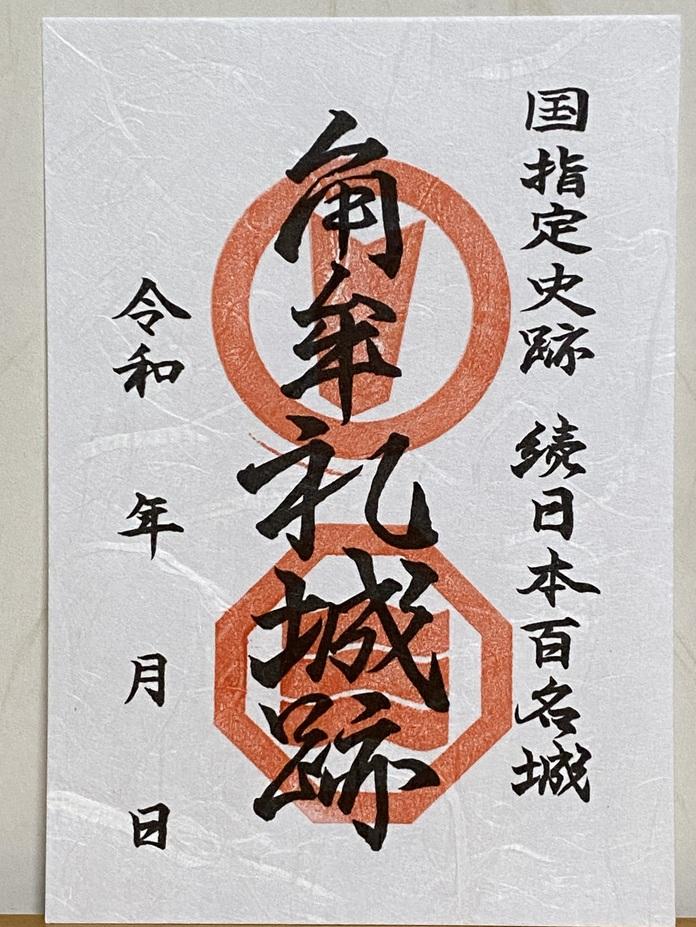 国指定史跡 続日本百名城
角牟礼城跡
令和 年 月 日